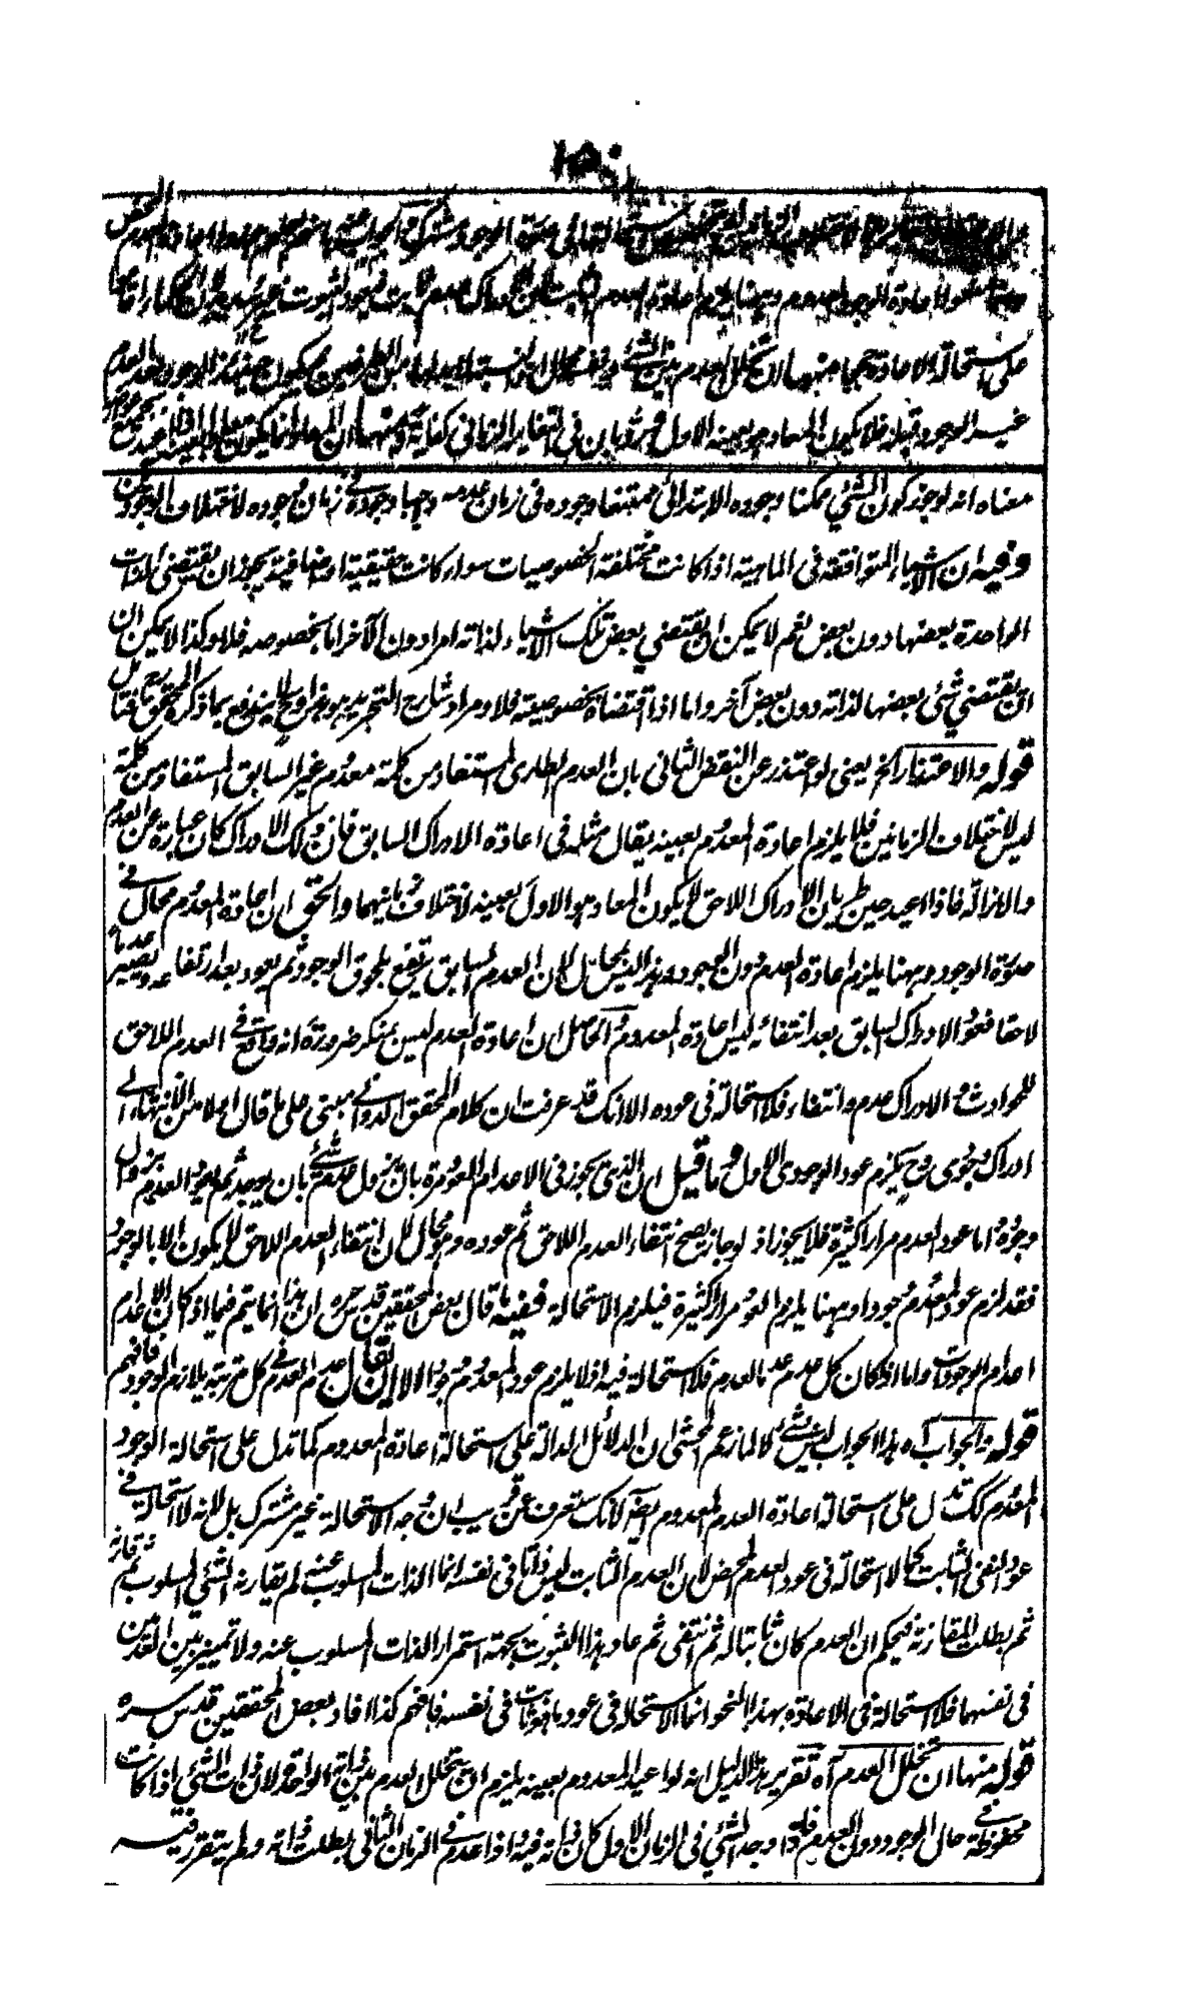 ١٥٠
الوجود مشترك
لاعادة الوجود المعدوم وههنا يلزم اعادة العدم
على استحالة الاعادة حججا منها ان تخلل العدم بين الشئ ونفسه محال اذ النسبة لا بد لها من الطرفين فيكون حينئذ الوجود بعد العدم
غير الوجود قبله فلا يكون المعاد هو بعينه الاول ورد بان في التغاير الزماني كفاية ومنها ان المعاد انما يكون
معناه انه لو جوز كون الشئ ممكنا وجوده الابتدائى ممتنعا وجوده فى زمان عدمه واجبا وجوده فى زمان وجوده لاختلاف الوجودين
وفيه ان الاشياء المتوافقة فى الماهية اذا كانت مختلفة الخصوصيات سواء كانت حقيقية او اضافية يجوز ان يقتضى الذات
الواحدة بعضها دون بعض نعم لا يمكن ان يقتضي بعض تلك الاشياء لذاته امرا دون الآخر اما بخصوصه فلا وكذا لا يمكن ان
ان يقتضي شئ بعضها لذاته دون بعض آخر واما اذا اقتضاه بخصوصيته فلا ومراد شارح التجريد هو هذا وح لا يندفع بما ذكره المحقق
قوله والاعتذار الخ يعنى لو اعتذر عن النقض الثانى بان العدم الطارى المستفاد من كلمة معدوم غير السابق المستفاد من كلمة
ليس لاختلاف الزمانين فلا يلزم اعادة المعدوم بعينه يقال مثله فى اعادة الادراك السابق فان ذلك الادراك كان عبارة عن العدم
والازالة فاذا اعيد حين طريان الادراك اللاحق لا يكون المعاد هو الاول بعينه لاختلاف زمانيهما والحق ان اعادة المعدوم محال فى
صورة الوجود وههنا يلزم اعادة العدم دون الوجود وهذا ليس بمحال لان العدم السابق يرتفع بلحوق الوجود ثم يعود بعد ارتفاعه ويصير عدما
لاحقا فعود الادراك السابق بعد انتفائه ليس اعادة المعدوم والحاصل ان اعادة العدم ليس بمنكر ضرورة انه واقع فى العدم اللاحق
للحوادث والادراك عدم وانتفاء فلا استحالة فى عوده الا انك قد عرفت ان كلام المحقق الدوانى مبنى على ما قال اولا من الانتهاء الى
ادراك وجودى وح يلزم عود الوجودى الاول وما قيل ان الذى يجوز فى الاعدام العود مرة بان يزول عدم شئ بان يوجد ثم يعود العدم بزوال
وجوده اما عود العدم مرارا كثيرة فلا يجوز اذ لو جاز يصح انتفاء العدم اللاحق ثم عوده وهو محال لان انتفاء العدم اللاحق لا يكون الا بالوجود
فقد لزم عود المعدوم موجودا وههنا يلزم العود مرارا كثيرة فيلزم الاستحالة ففيه ما قال بعض المحققين قدس سره ان هذا انما يتم فيما اذا كان الاعدام
اعدام الوجودات واما اذا كان كل عدم عدما لعدم فلا استحالة فيه اذ لا يلزم عود المعدوم موجودا الا ان يقال عدم العدم فى كل مرتبة يلازم الوجود فافهم
قوله والجواب اه هذا الجواب ليس بشئ لا لما زعم المحشى ان الدلائل الدالة على استحالة اعادة المعدوم كما تدل على استحالة الوجود
المعدوم كك تدل على استحالة اعادة العدم المعدوم ايضا لانك ستعرف عن قريب ان وجه الاستحالة غير مشترك بل لانه لا استحالة فى
عود النفى الثابت كما لا استحالة فى عود العدم المحض لان العدم الثابت ليس ذاتا فى نفسه انما الذات المسلوب عنه لم يقارنه الشئ المسلوب ثم قارنه
ثم بطلت المقارنة فيحكم ان العدم كان ثابتا له ثم انتفى ثم عاد وهذا الثبوت بجهة استمرار الذات المسلوب عنه ولا تمييز بين العدمين
فى نفسهما فلا استحالة فى الاعادة بهذا النحو انما الاستحالة فى عود ما هو ثابت فى نفسه فافهم كذا افاد بعض المحققين قدس سره
قوله منها ان تخلل العدم آه تقرير هذا الدليل انه لو اعيد المعدوم بعينه يلزم ان يتخلل العدم بين ذاته الواحدة لان ذات الشئ اذا كانت
محفوظة فى حال الوجود دون العدم فاذا وجد الشئ فى الزمان الاول كان ذاته فيه واذا عدم فى الزمان الثانى بطلت ذاته ولم يتقرر فيه